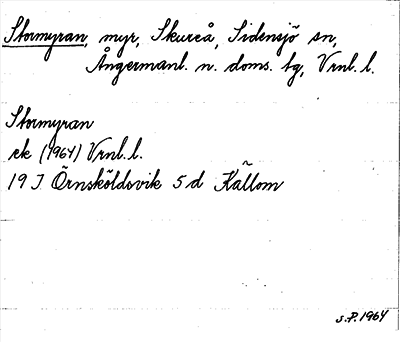 Stormyran, myr, Skureå, Sidensjö sn,
Ångermanl. n. doms. tg, Vrnl. l.
Stormyran
ek (1964) Vrnl. l.
19 J Örnsköldsvik 5 d Källom
S.P. 1964